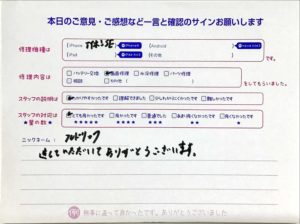 本日のご意見・ご感想など一言と確認のサインお願いします
修理機種は
iPhone
Android
iPad
その他
修理内容は
バッテリー交換 画面修理 水没修理 パーツ修理
その他
をしてもらいました。
スタッフの説明は
わかりやすかったです 理解できました 少しわかりにくかったです 難しかったです
スタッフの対応は
★星の数★
とても良かったです 良かったです 普通でした
★★★★★ ★★★★ ★★★ ★★ ★
ニックネーム:
直していただいてありがとうございます。
無事に直って良かったです。ありがとうございました